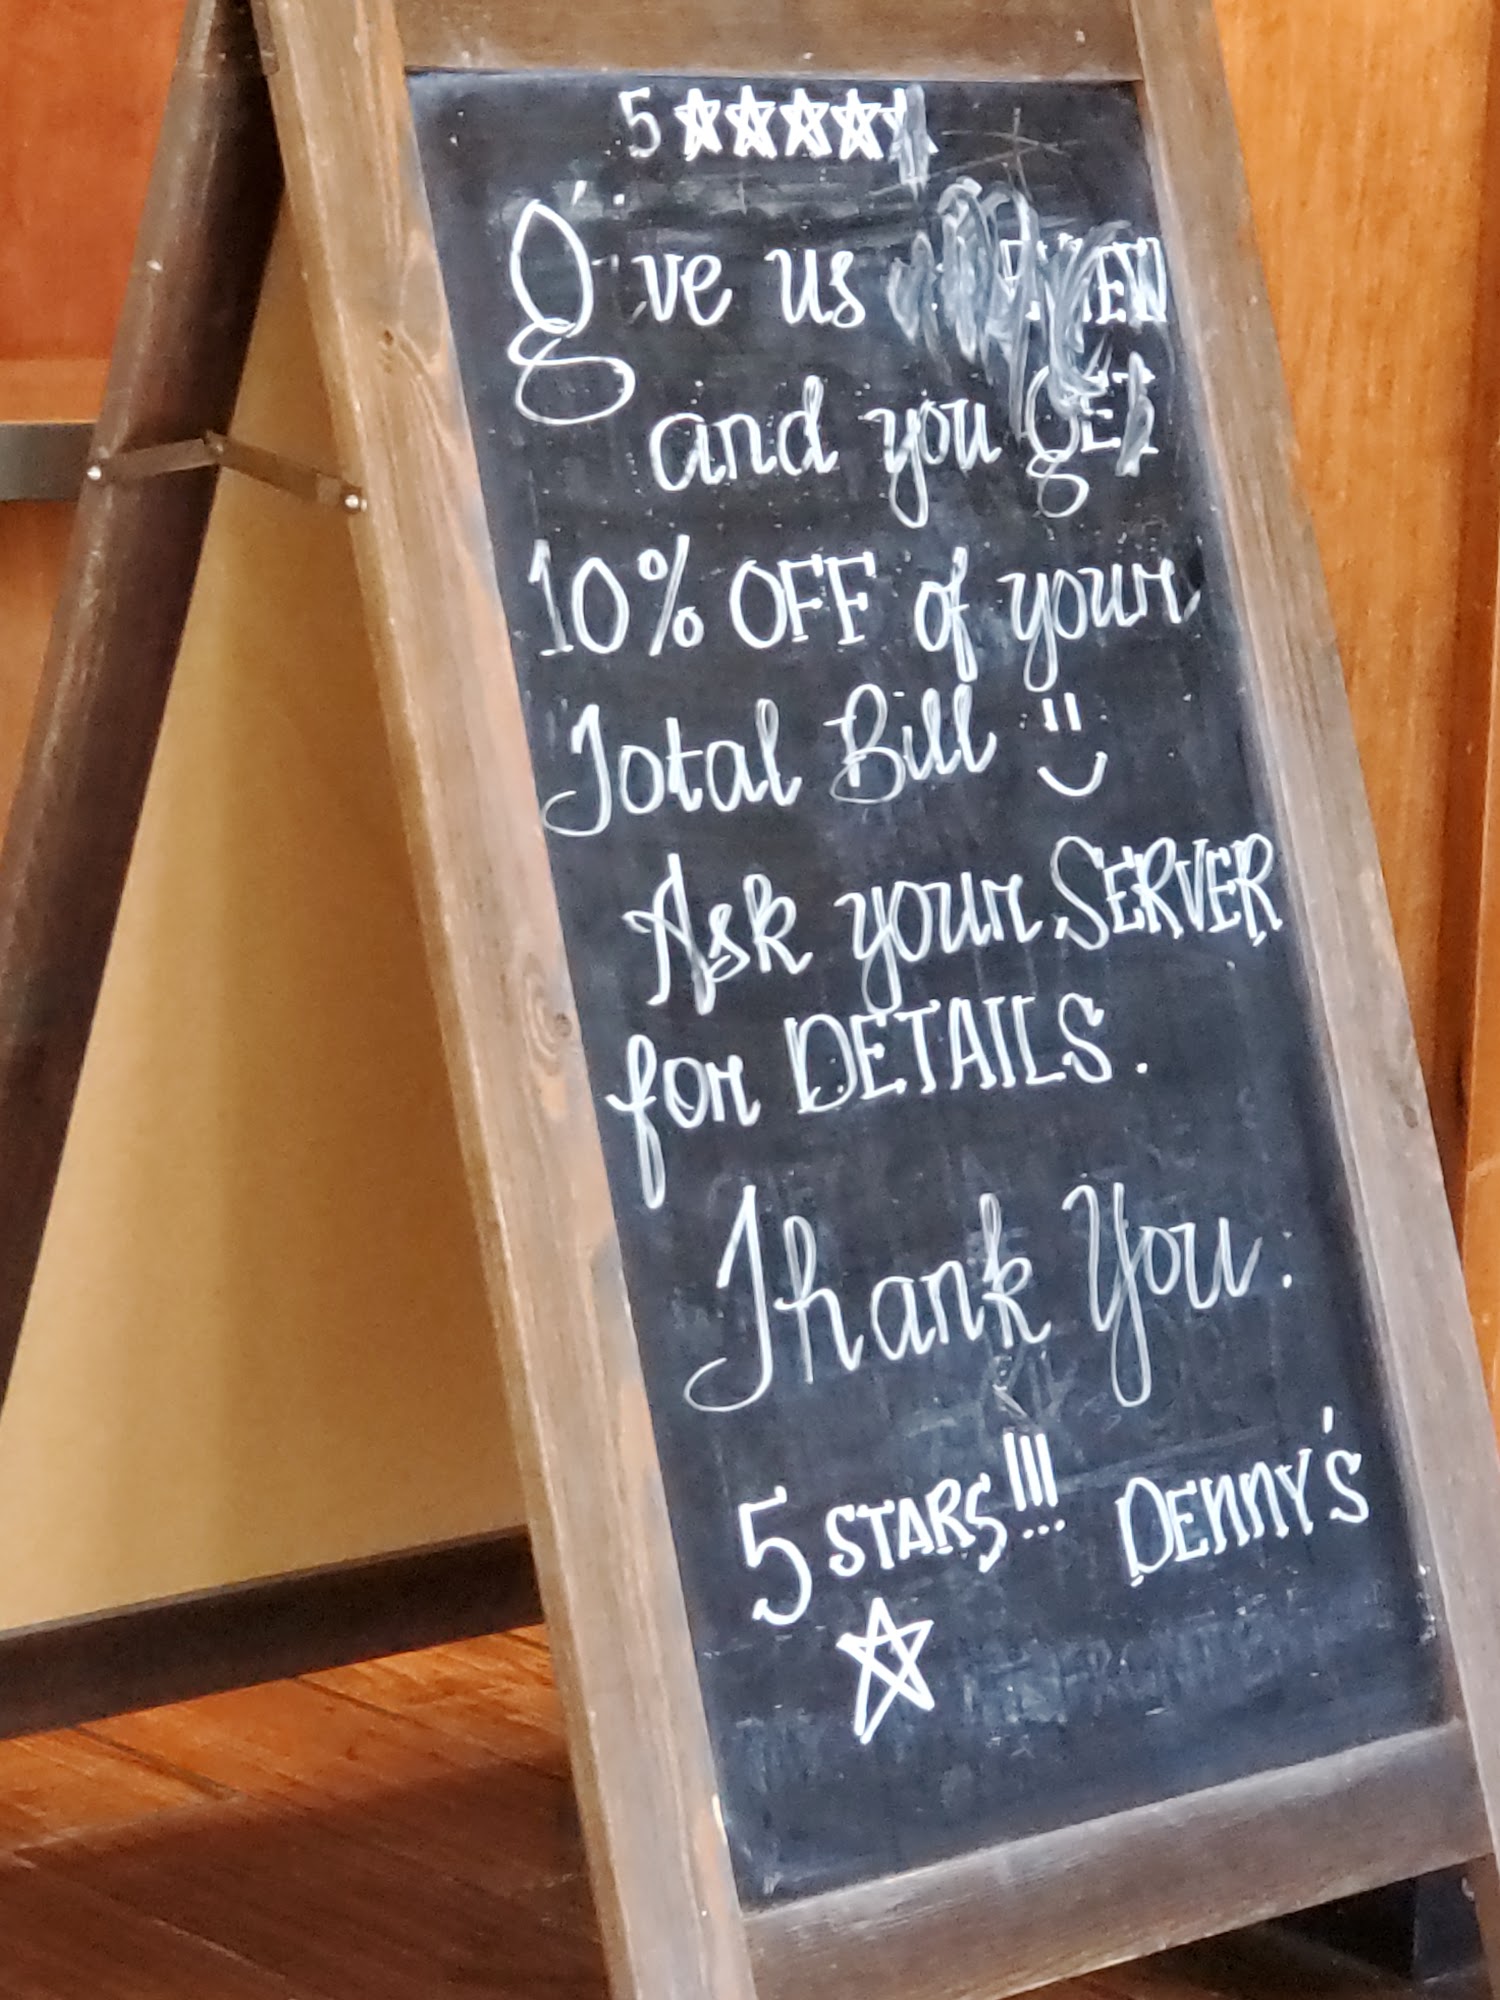 5 ★★★★★
Give us REVIEW
and you GET
10% OFF of your
Total Bill
Ask your SERVER
for DETAILS.
Thank You.
5 STARS!!! DENNY'S